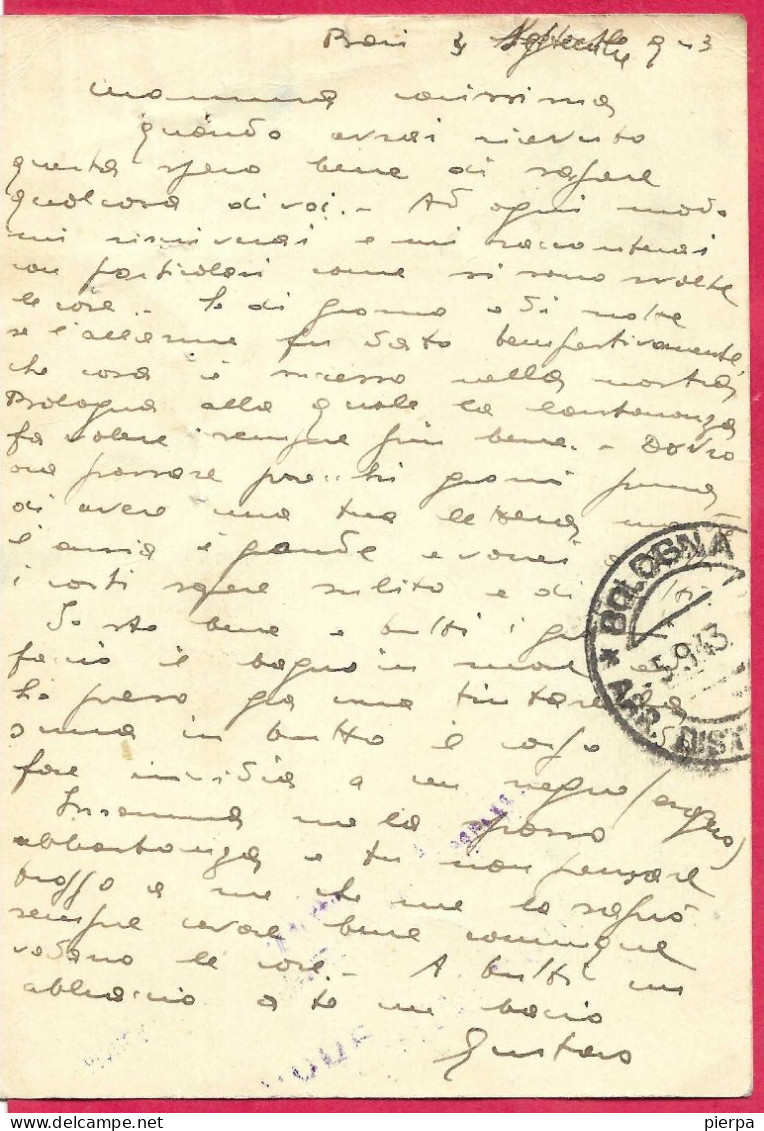 Bari 3 Settembre 943
mamma carissima
quando avrai ricevuto
questa spero bene di sapere
qualcosa di voi. - Ad ogni modo
mi riscriverai e mi racconterai
con particolari come si sono svolte
le cose. - Se di giorno o di notte
se l'allarme fu dato tempestivamente,
che cosa è successo nella nostra
Bologna alla quale la lontananza
fa volere sempre più bene. - Dovrò
ora passare parecchi giorni prima
di avere una tua lettera ma
l'ansia è grande e vorrei
sapere subito e di
Io sto bene e tutti i giorni
faccio il bagno in mare e
ho preso già una tintarella
in tutto il corpo da
fare invidia a un negro (esagero)
Insomma me la passo
abbastanza e tu non pensare
troppo a me che me la saprò
sempre cavare bene comunque
vadano le cose. - A tutti un
abbraccio a te un bacio
Gustavo
* BOLOGNA
5.9.43
ARR. DIST
pierpa